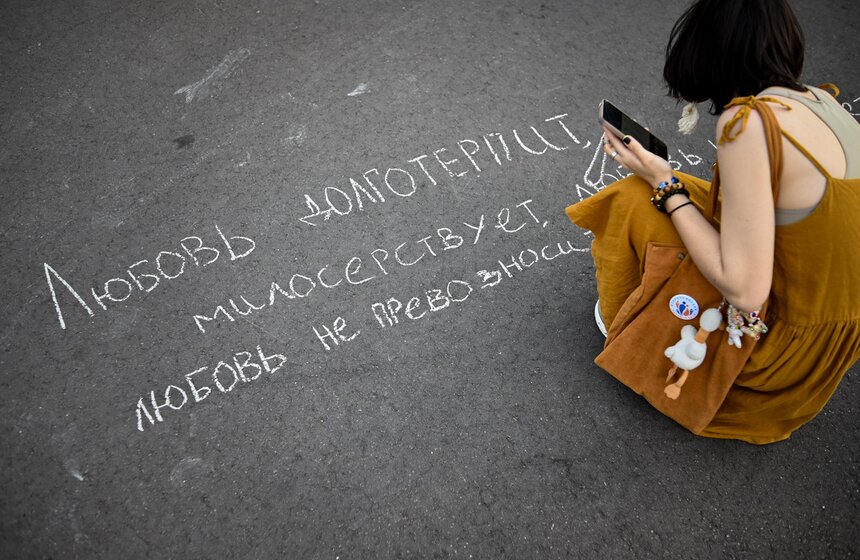 Любовь долготерпит,
милосерствует,
любовь не превозносит